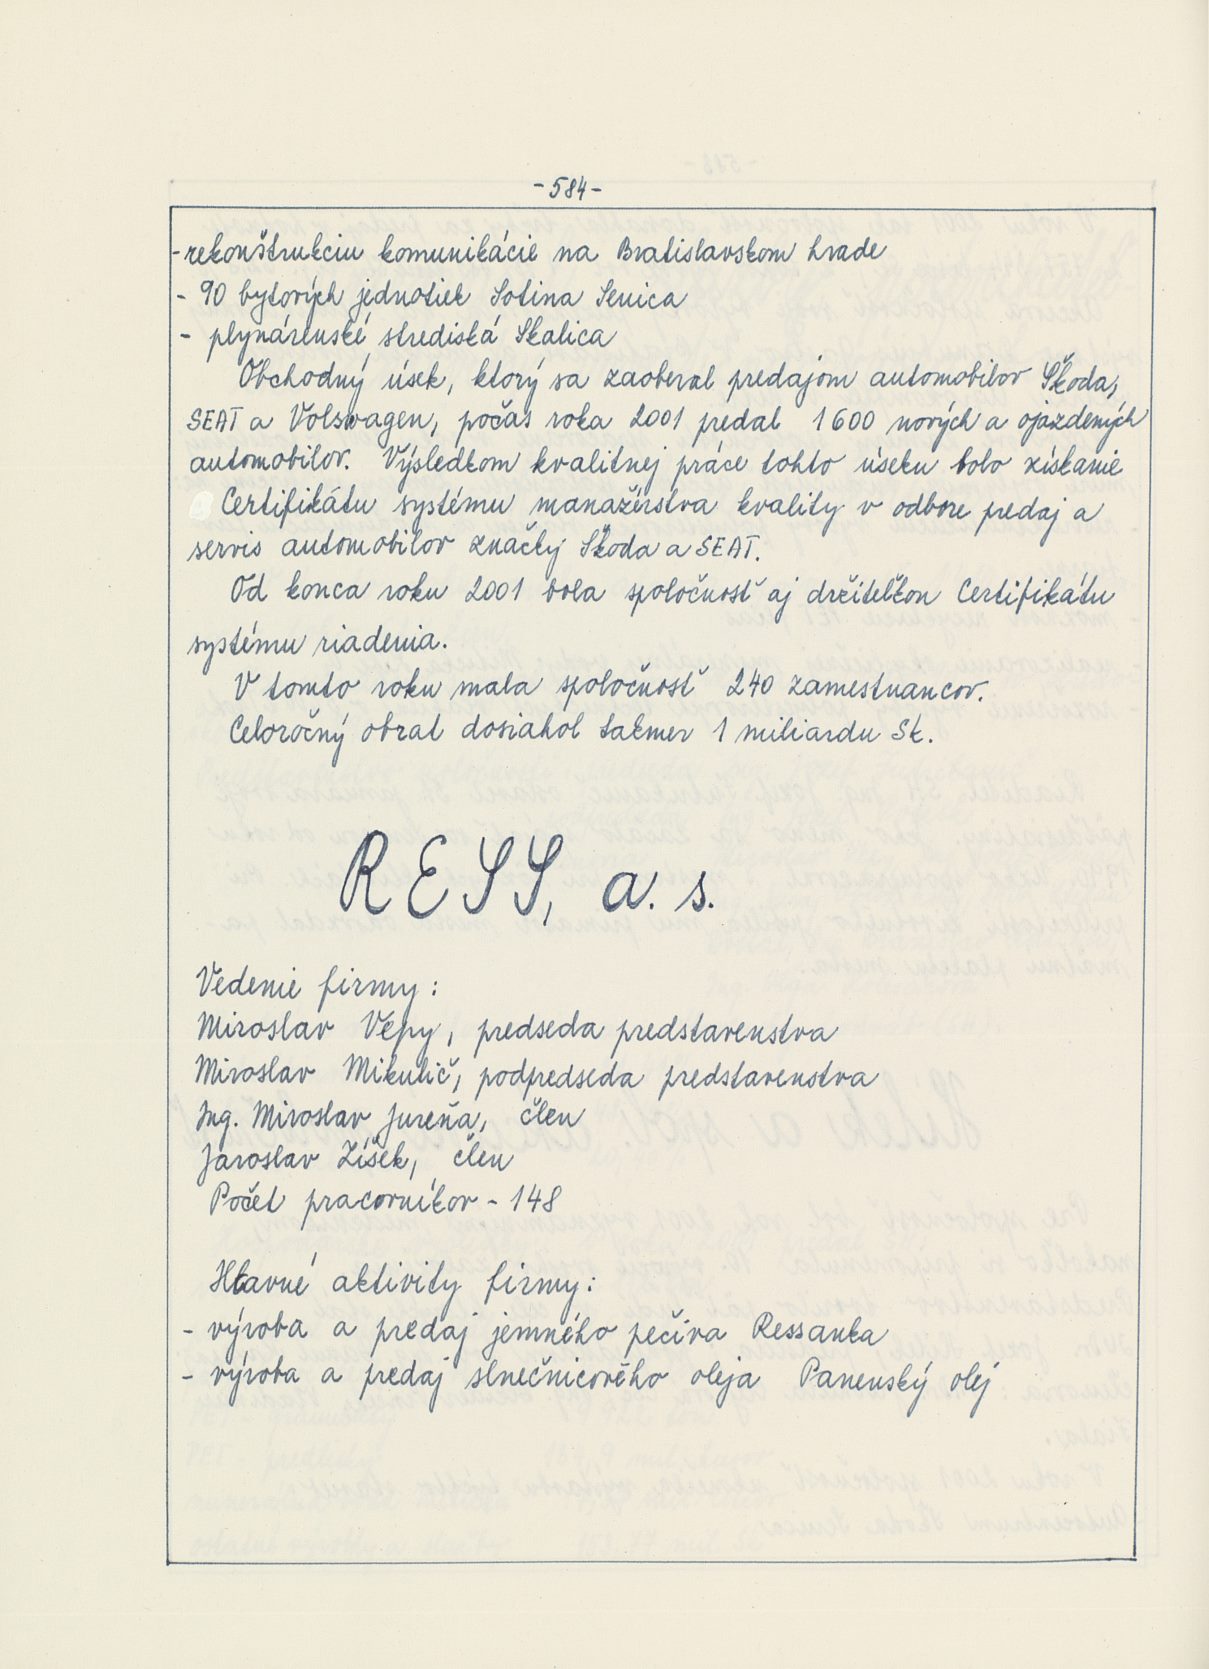 -584-
- rekonštrukciu komunikácie na Bratislavskom hrade
- 90 bytových jednotiek Sotina Senica
- plynárenské strediská Skalica
Obchodný úsek, ktorý sa zaoberal predajom automobilov Škoda,
SEAT a Volswagen, počas roka 2001 predal 1600 nových a ojazdených
automobilov. Výsledkom kvalitnej práce tohto úseku bolo získanie
Certifikátu systému manažérstva kvality v odbore predaj a
servis automobilov značky Škoda a SEAT.
Od konca roku 2001 bola spoločnosť aj držiteľkou Certifikátu
systému riadenia.
V tomto roku mala spoločnosť 240 zamestnancov.
Celoročný obrat dosiahol takmer 1 miliardu Sk.
RESS, a. s.
Vedenie firmy:
Miroslav Vépy, predseda predstavenstva
Miroslav Mikulič, podpredseda predstavenstva
Ing. Miroslav Jureňa, člen
Jaroslav Žíšek, člen
Počet pracovníkov - 148
Hlavné aktivity firmy:
- výroba a predaj jemného pečiva Ressanka
- výroba a predaj slnečnicového oleja Panenský olej